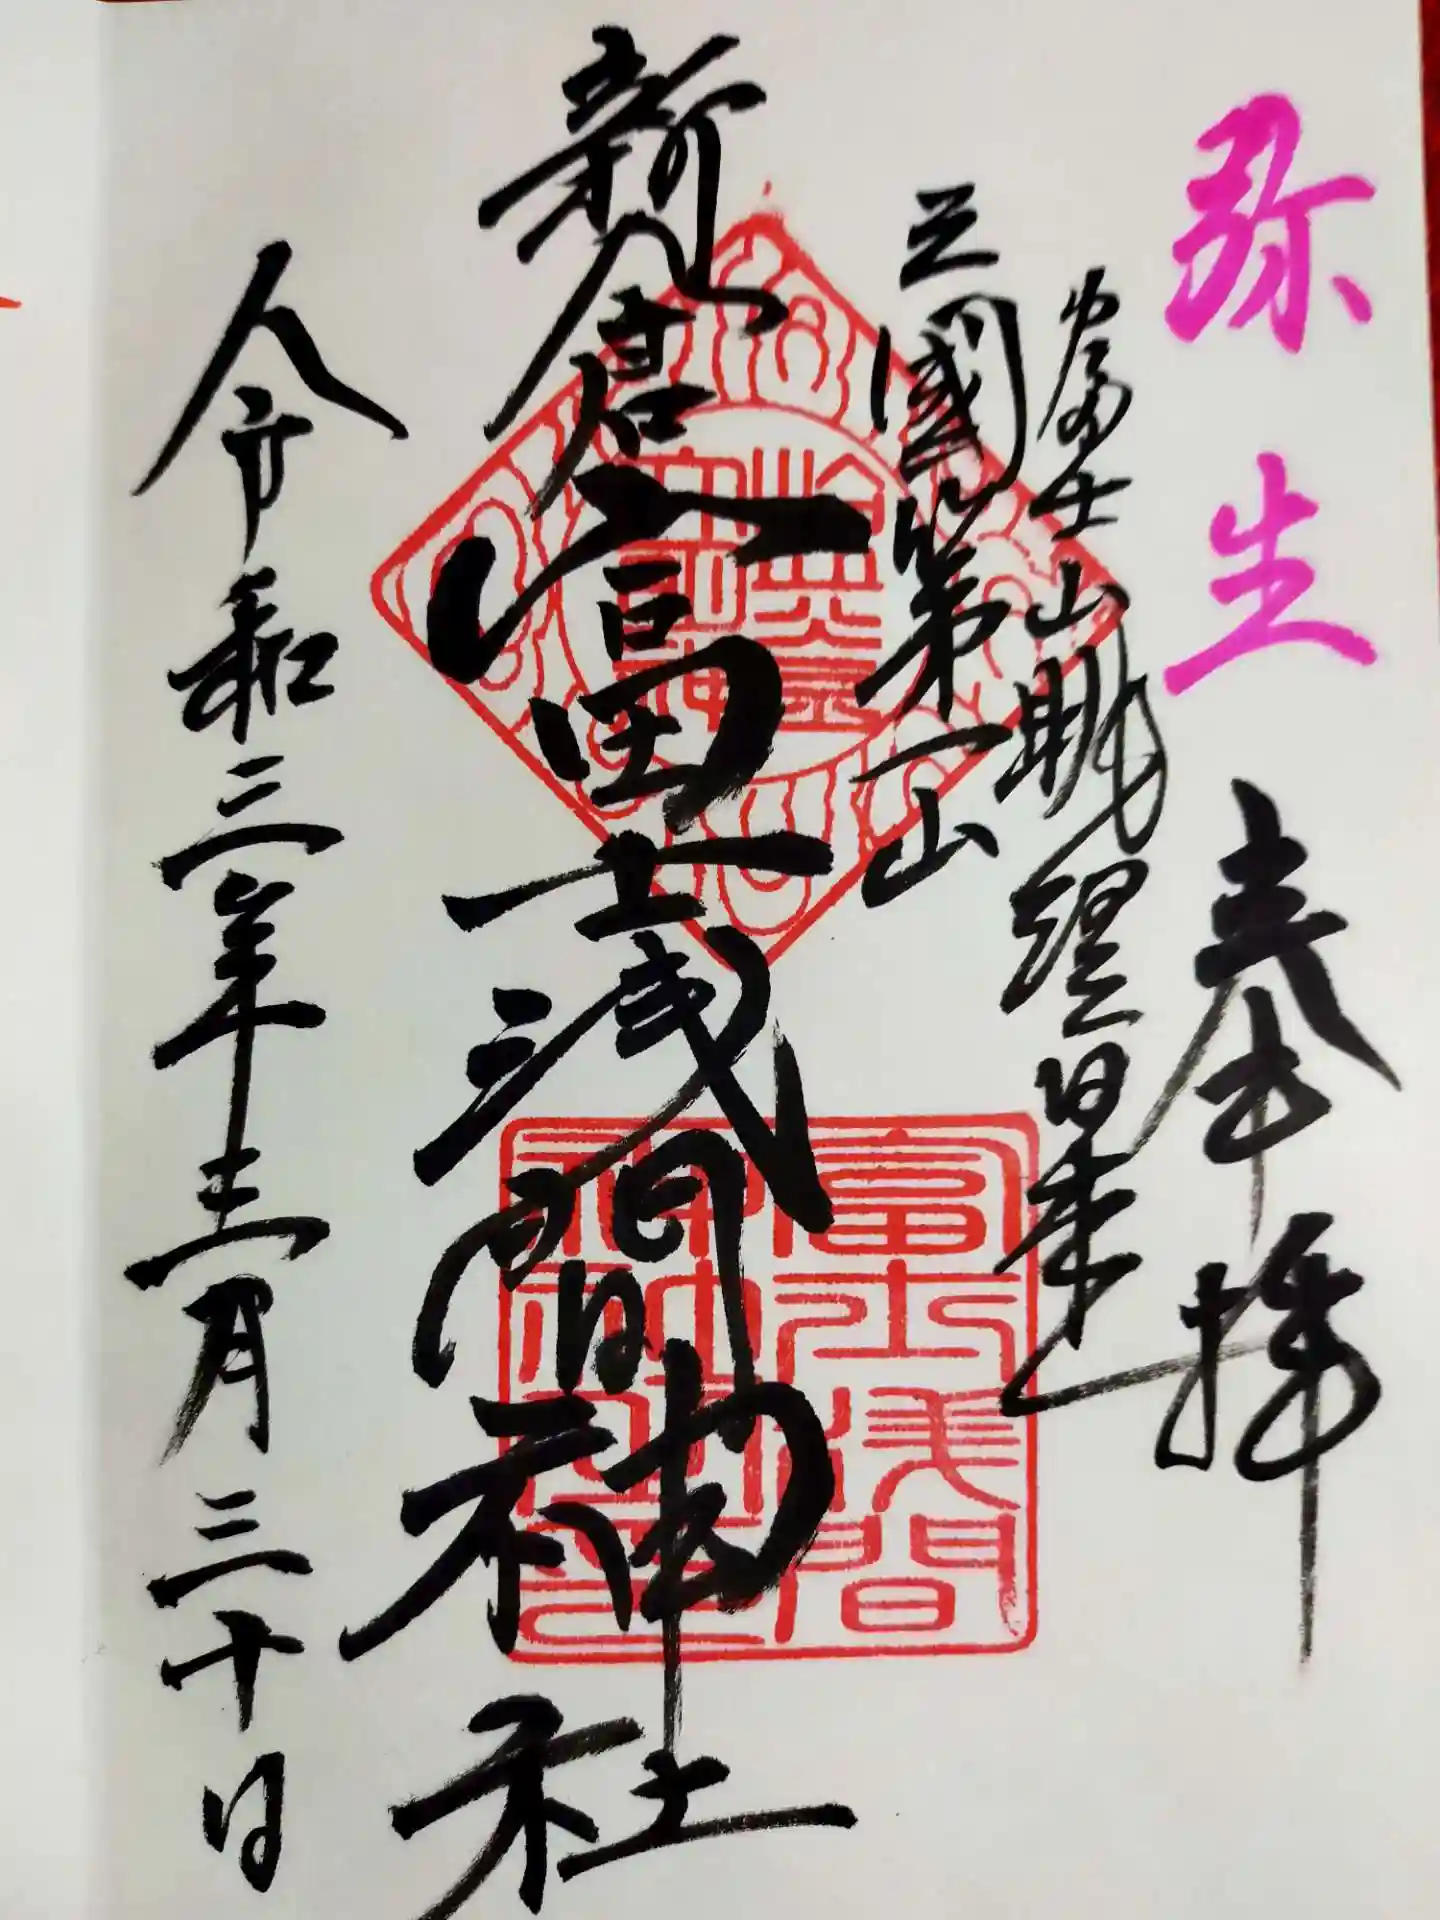 弥生
奉拝
富士山眺
三國第一山
新倉富士浅間神社
令和三年三月三十日
富士浅間